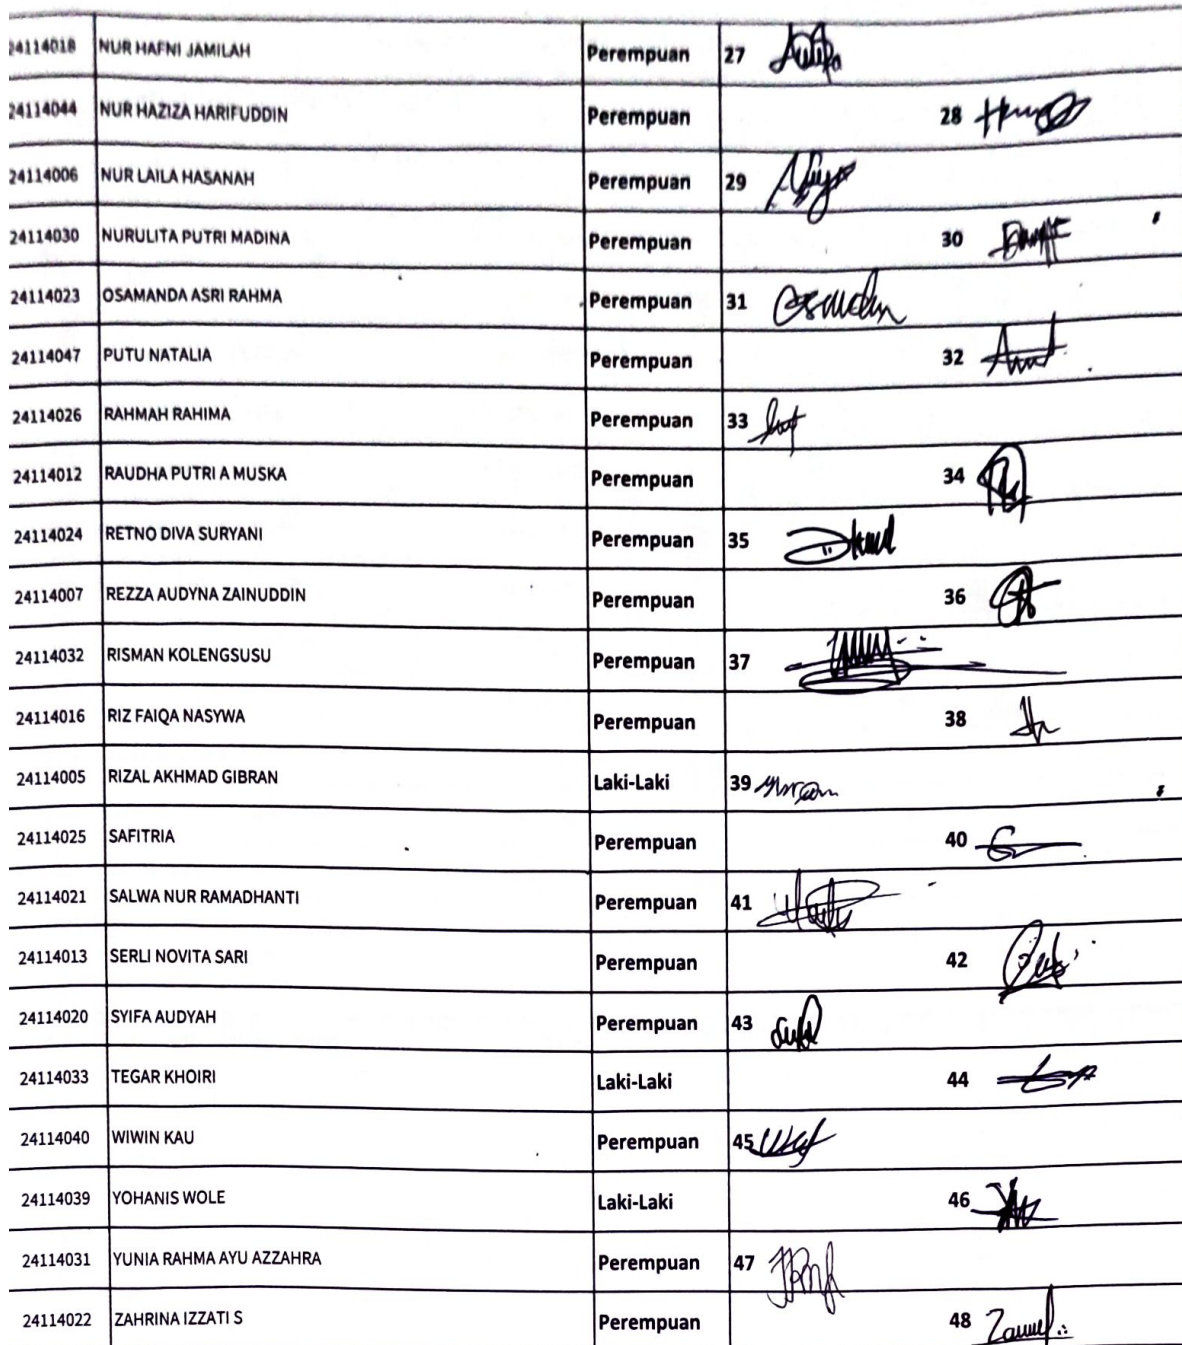 24114018 NUR HAFNI JAMILAH Perempuan 27
24114044 NUR HAZIZA HARIFUDDIN Perempuan 28
24114006 NUR LAILA HASANAH Perempuan 29
24114030 NURULITA PUTRI MADINA Perempuan 30
24114023 OSAMANDA ASRI RAHMA Perempuan 31
24114047 PUTU NATALIA Perempuan 32
24114026 RAHMAH RAHIMA Perempuan 33
24114012 RAUDHA PUTRI A MUSKA Perempuan 34
24114024 RETNO DIVA SURYANI Perempuan 35
24114007 REZZA AUDYNA ZAINUDDIN Perempuan 36
24114032 RISMAN KOLENGSUSU Perempuan 37
24114016 RIZ FAIQA NASYWA Perempuan 38
24114005 RIZAL AKHMAD GIBRAN Laki-Laki 39
24114025 SAFITRIA Perempuan 40
24114021 SALWA NUR RAMADHANTI Perempuan 41
24114013 SERLI NOVITA SARI Perempuan 42
24114020 SYIFA AUDYAH Perempuan 43
24114033 TEGAR KHOIRI Laki-Laki 44
24114040 WIWIN KAU Perempuan 45
24114039 YOHANIS WOLE Laki-Laki 46
24114031 YUNIA RAHMA AYU AZZAHRA Perempuan 47
24114022 ZAHRINA IZZATI S Perempuan 48